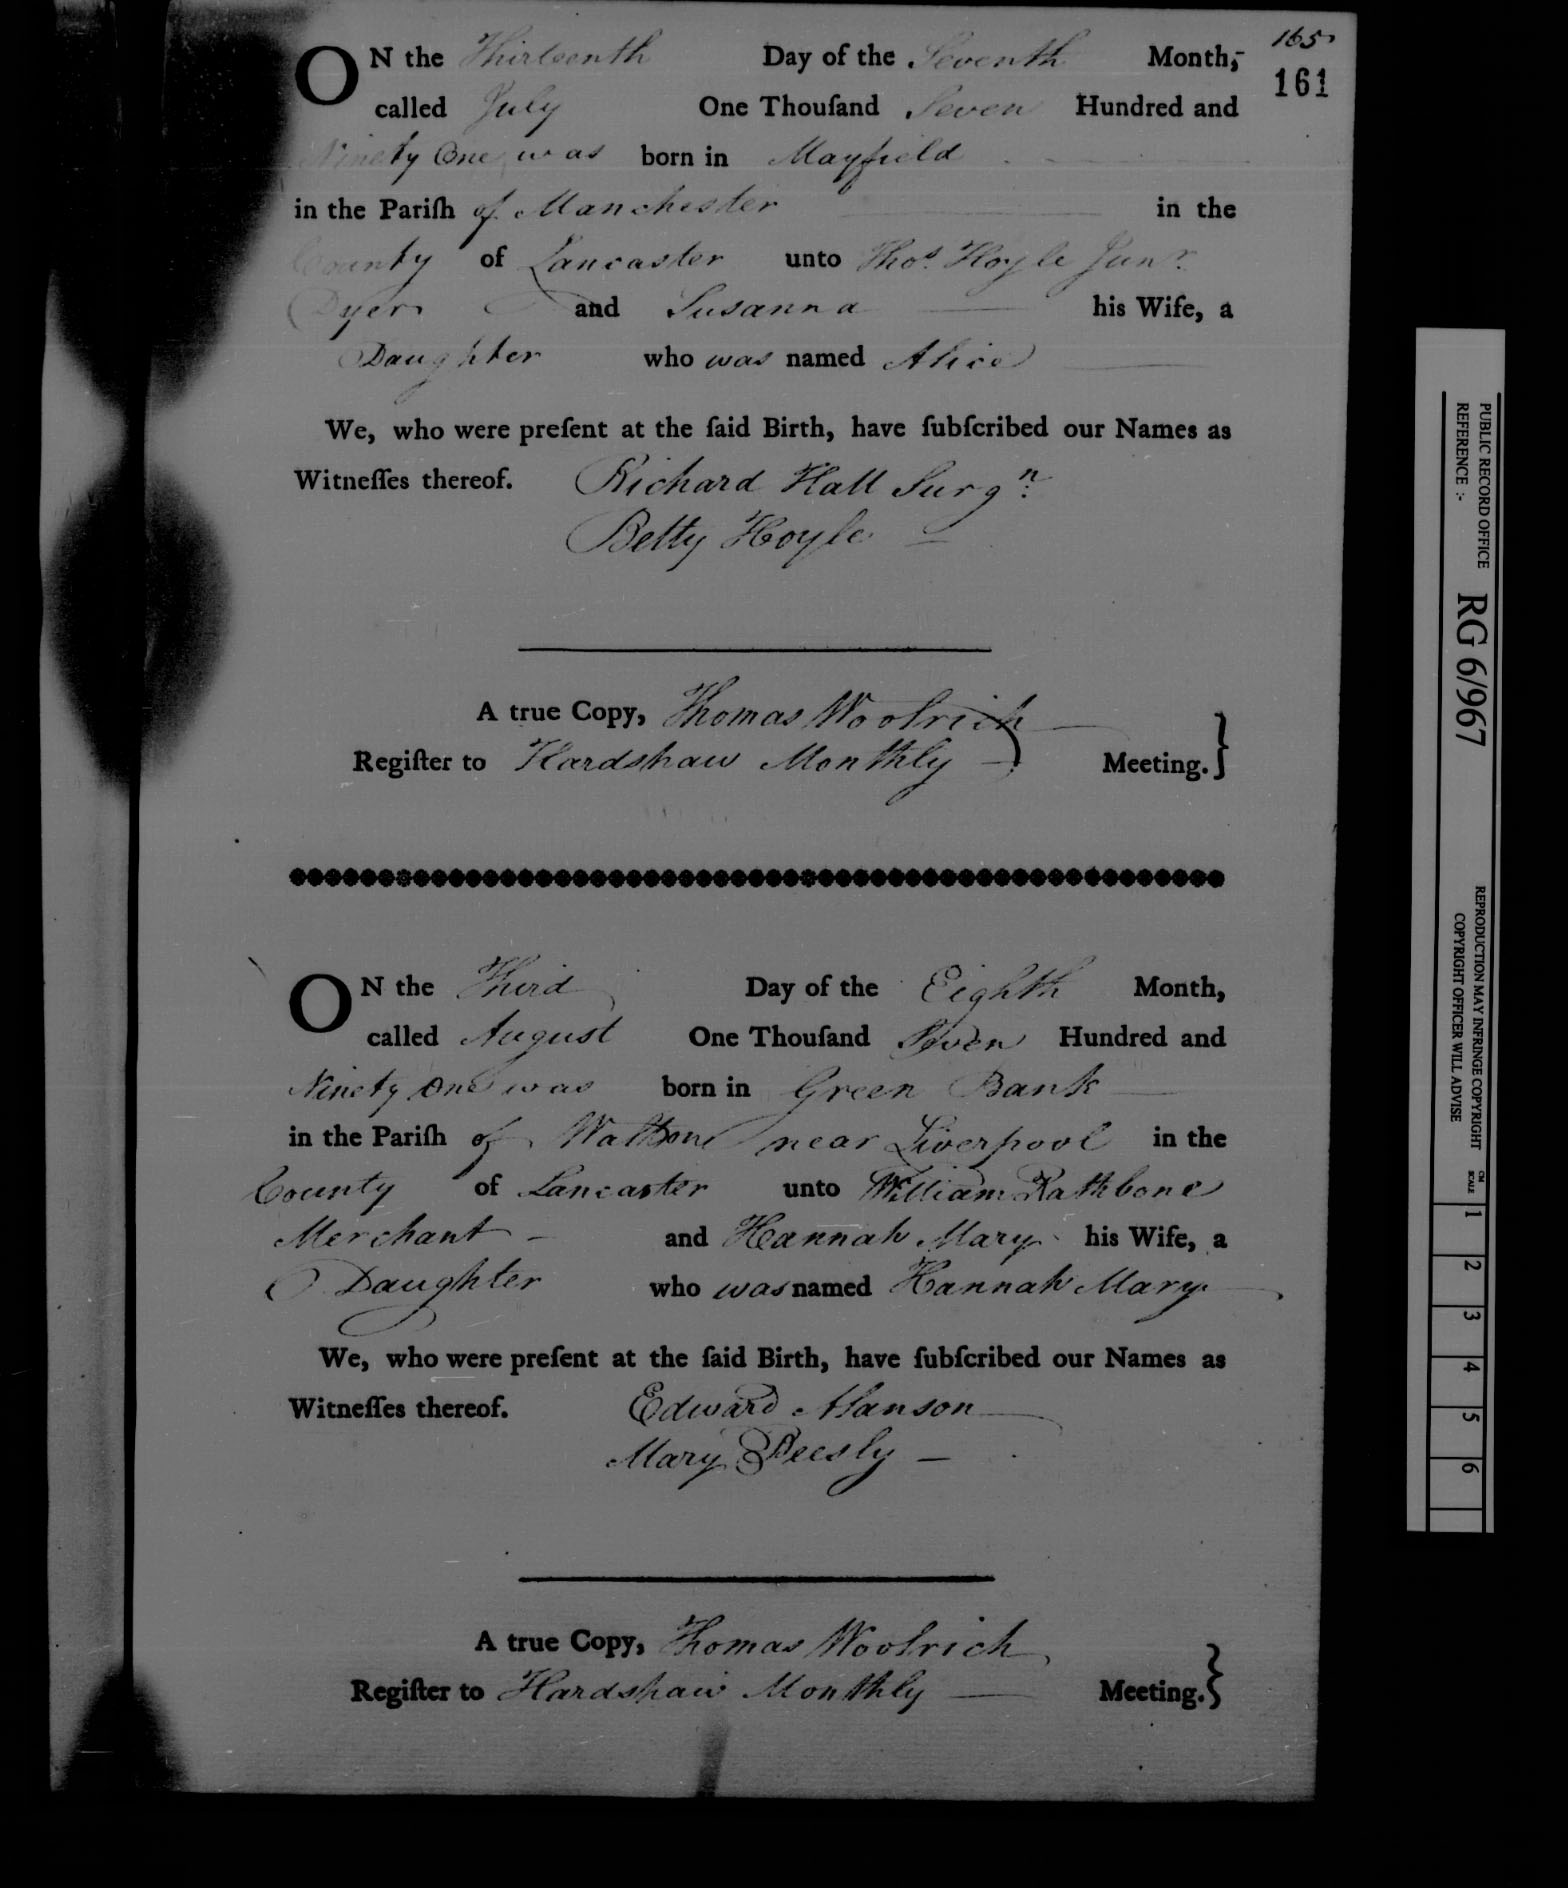 165
161
ON the Thirteenth Day of the Seventh Month,
called July One Thouſand Seven Hundred and
Ninety One was born in Mayfield
in the Pariſh of Manchester in the
County of Lancaster unto Thos. Hoyle Junr.
Dyer and Susanna his Wife, a
Daughter who was named Alice
We, who were preſent at the ſaid Birth, have ſubſcribed our Names as
Witneſſes thereof. Richard Hall Surgn.
Betty Hoyle
A true Copy, Thomas Woolrich
Regiſter to Hardshaw Monthly Meeting.}
ON the Third Day of the Eighth Month,
called August One Thouſand Seven Hundred and
Ninety One was born in Green Bank
in the Pariſh of Walton near Liverpool in the
County of Lancaster unto William Rathbone
Merchant and Hannah Mary his Wife, a
Daughter who was named Hannah Mary
We, who were preſent at the ſaid Birth, have ſubſcribed our Names as
Witneſſes thereof. Edward Alanson
Mary Beesly
A true Copy, Thomas Woolrich
Regiſter to Hardshaw Monthly Meeting.}
PUBLIC RECORD OFFICE
REFERENCE :-
RG 6/967
REPRODUCTION MAY INFRINGE COPYRIGHT
COPYRIGHT OFFICER WILL ADVISE
CM
SCALE
1 2 3 4 5 6